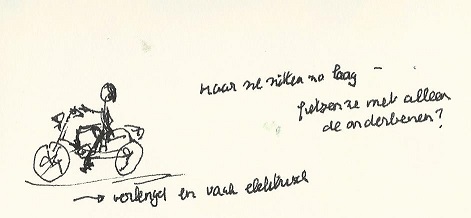 maar ze zitten zo laag –
fietsen ze met alleen
de onderbenen?
→ verlengd en vaak elektrisch